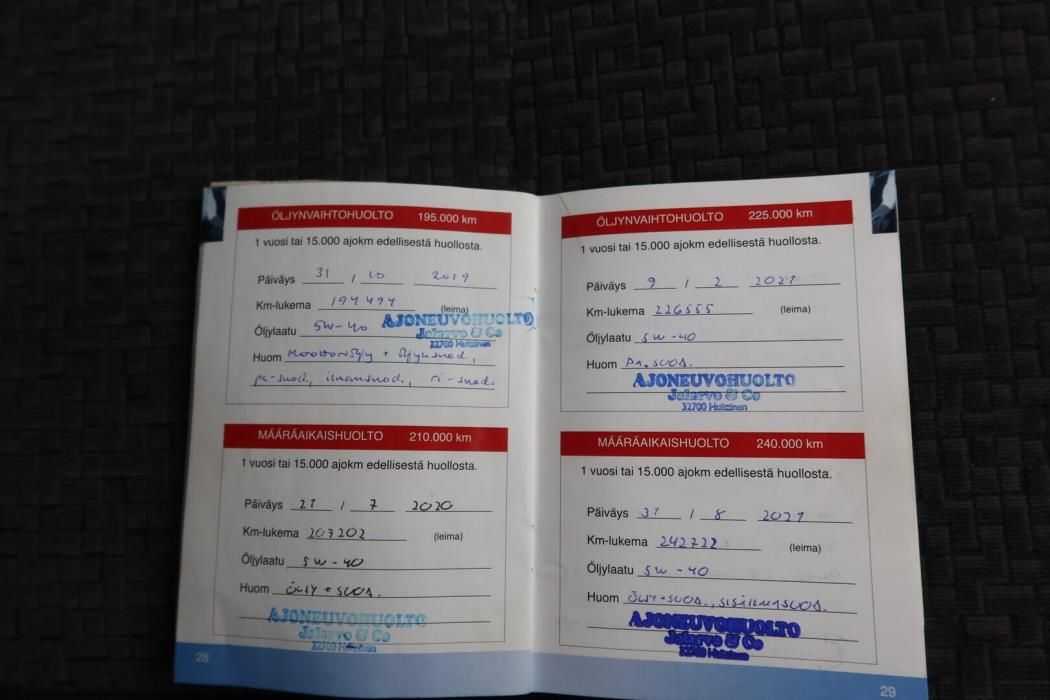 ÖLJYNVAIHTOHUOLTO 195.000 km
1 vuosi tai 15.000 ajokm edellisestä huollosta.
Päiväys 31 / 10 2019
Km-lukema 194494 (leima)
Öljylaatu 5W-40
AJONEUVOHUOLTO
Jalarvo & Co
32700 Huittinen
Huom Moottoriöljy + öljynsuod,
pa-suod, ilmansuod, ri-suod.
MÄÄRÄAIKAISHUOLTO 210.000 km
1 vuosi tai 15.000 ajokm edellisestä huollosta.
Päiväys 21 / 7 2020
Km-lukema 207202 (leima)
Öljylaatu 5W-40
Huom ÖLJY + SUOD.
AJONEUVOHUOLTO
Jalarvo & Co
32700 Huittinen
28
ÖLJYNVAIHTOHUOLTO 225.000 km
1 vuosi tai 15.000 ajokm edellisestä huollosta.
Päiväys 9 / 2 2021
Km-lukema 226555 (leima)
Öljylaatu 5W-40
Huom PA.SUOD.
AJONEUVOHUOLTO
Jalarvo & Co
32700 Huittinen
MÄÄRÄAIKAISHUOLTO 240.000 km
1 vuosi tai 15.000 ajokm edellisestä huollosta.
Päiväys 31 / 8 2021
Km-lukema 242722 (leima)
Öljylaatu 5W-40
Huom ÖLJY+SUOD., SISÄILMASUOD.
AJONEUVOHUOLTO
Jalarvo & Co
32700 Huittinen
29